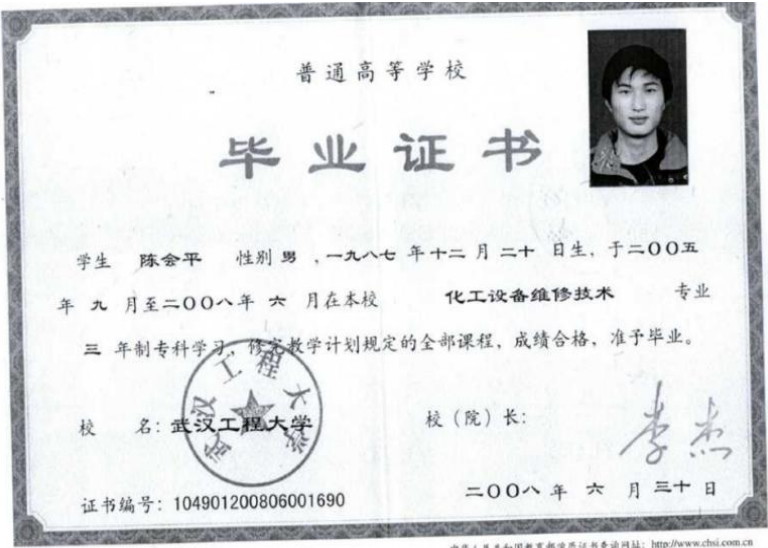 普通高等学校
毕业证书
学生 陈会平 性别 男 ,一九八七 年 十二 月 二十 日生，于二〇〇五
年 九 月至二〇〇八年 六 月在本校 化工设备维修技术 专业
三 年制专科学习，修完教学计划规定的全部课程，成绩合格，准予毕业。
武汉工程大学
校 名：武汉工程大学 校（院）长：李杰
证书编号：104901200806001690 二〇〇八 年 六 月 三十 日
中华人民共和国教育部学历证书查询网址：http://www.chsi.com.cn